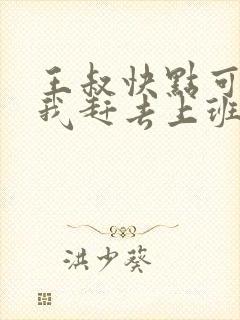 王叔快點可
我赶去上班
洪少葵